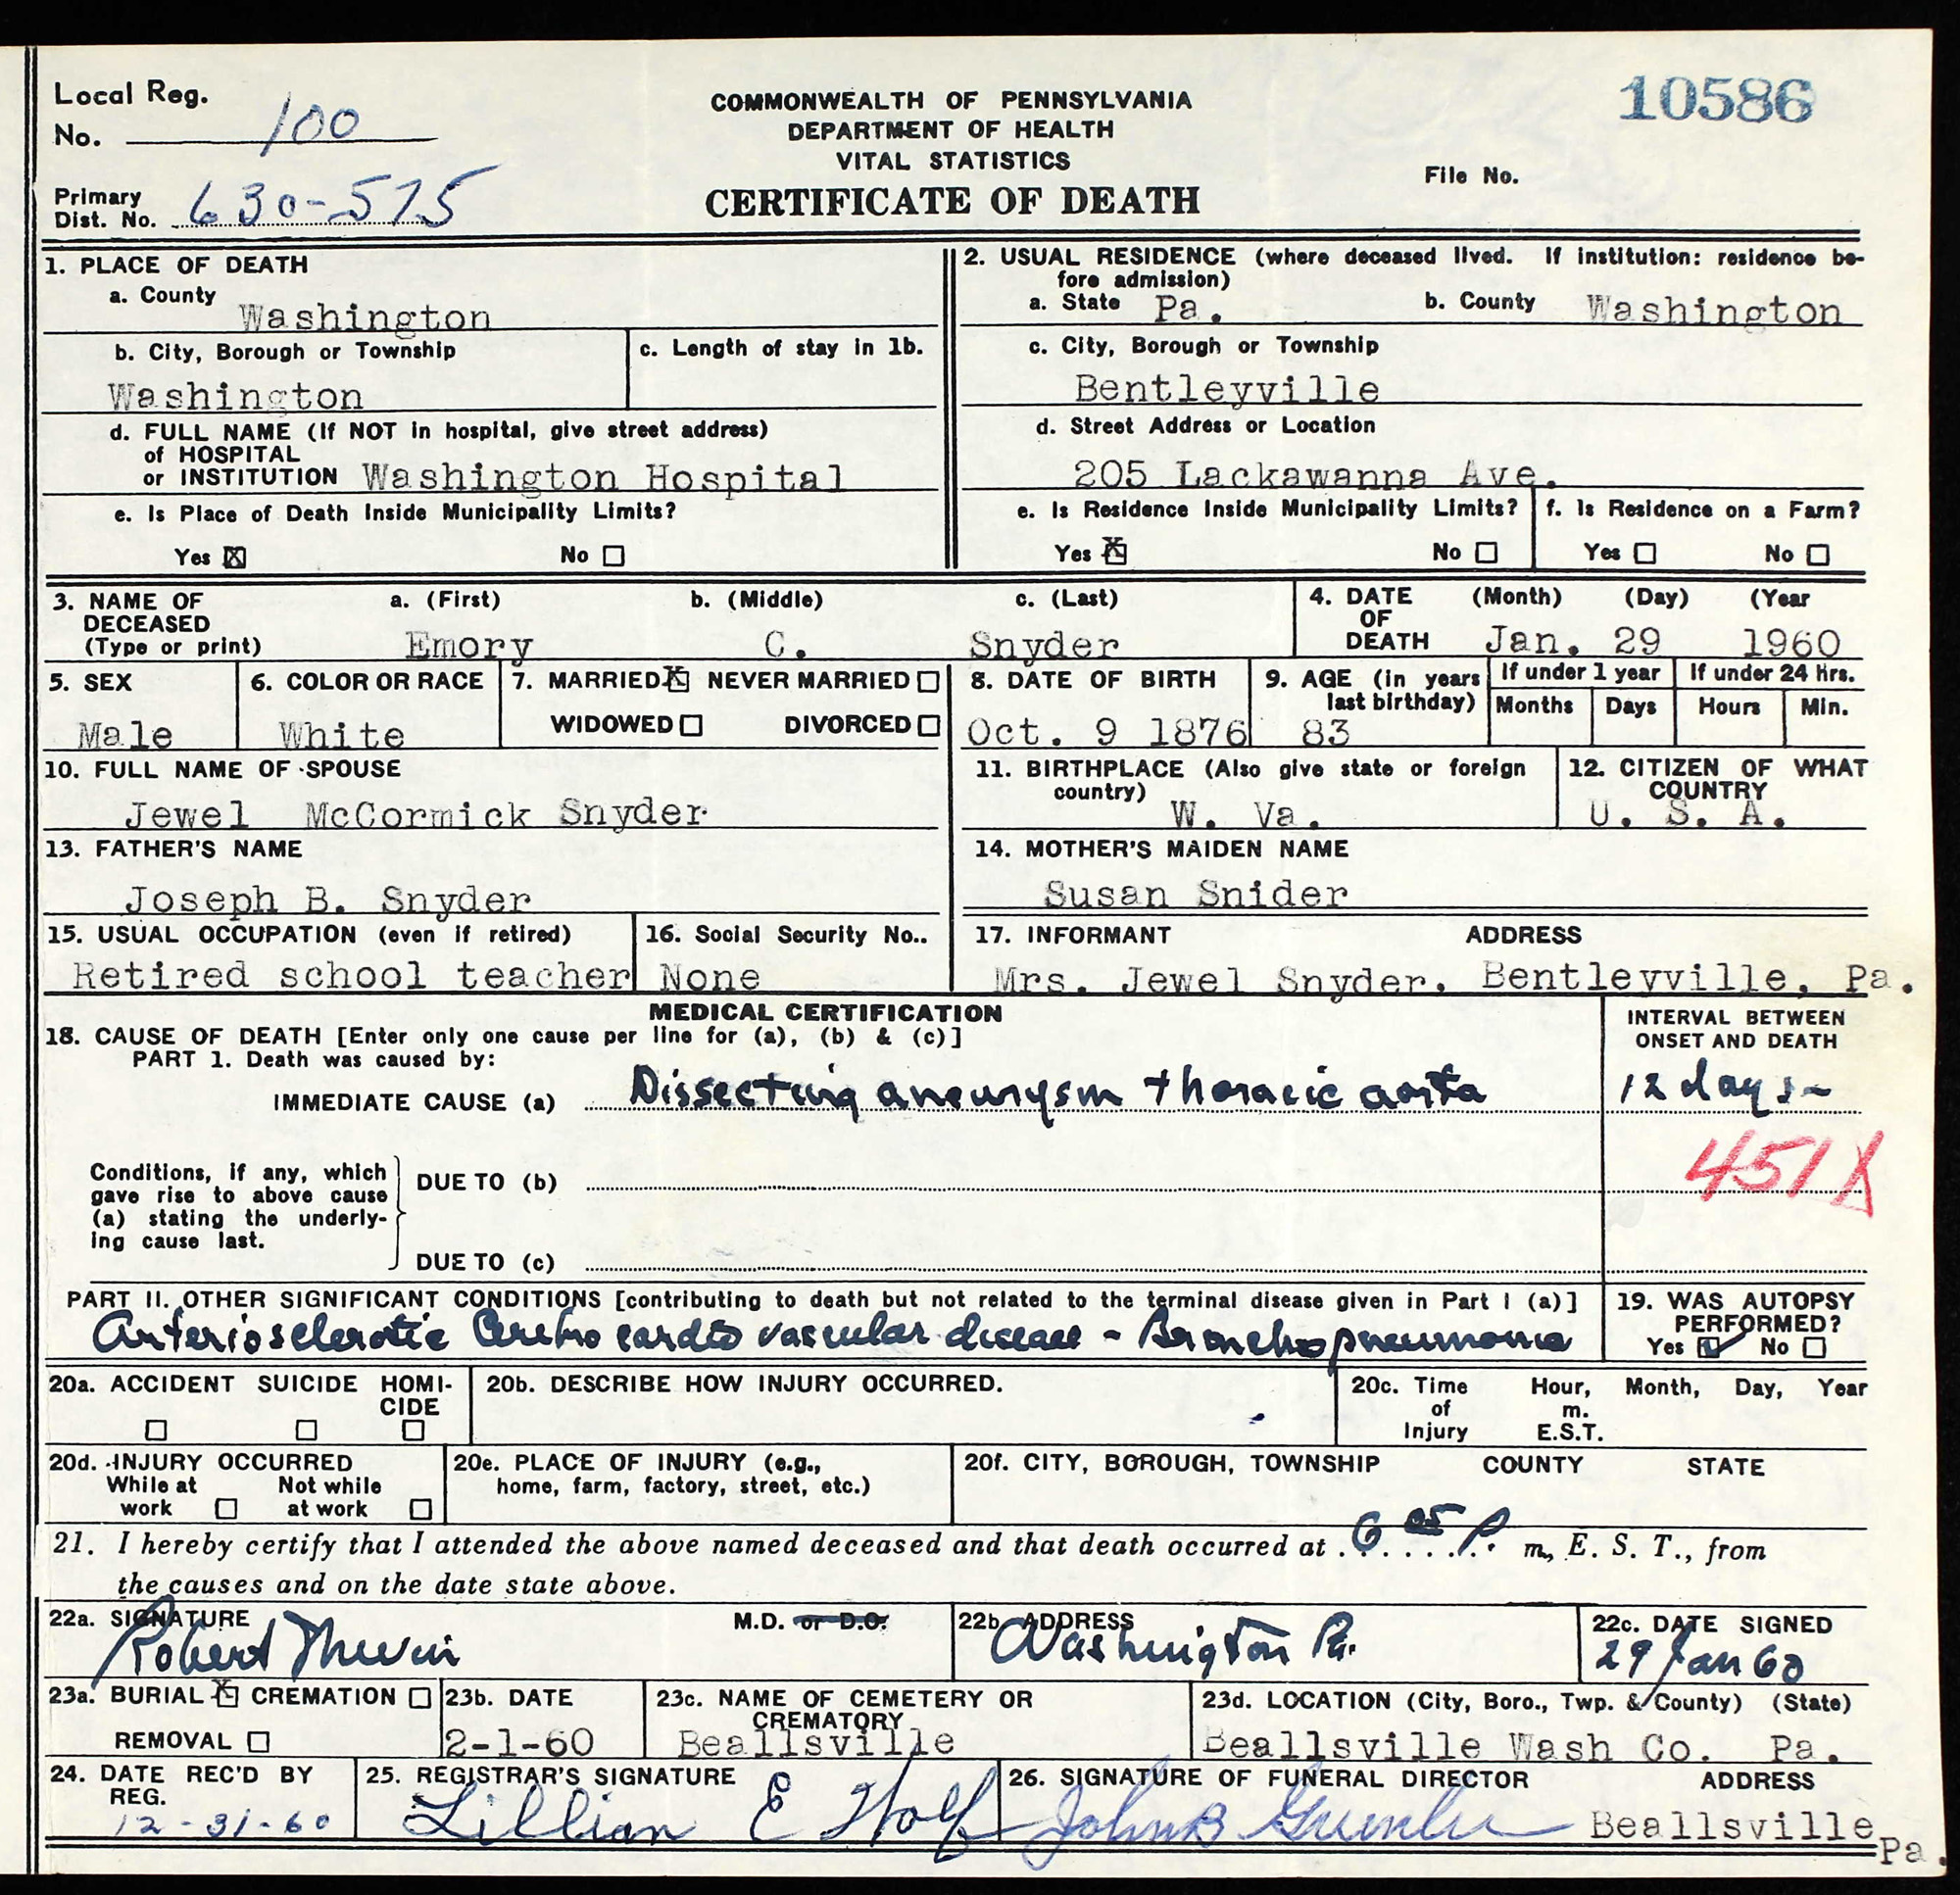 Local Reg.
No. 100
10586
COMMONWEALTH OF PENNSYLVANIA
DEPARTMENT OF HEALTH
VITAL STATISTICS
CERTIFICATE OF DEATH
File No.
Primary
Dist. No. 630-575
1. PLACE OF DEATH
a. County
Washington
b. City, Borough or Township
c. Length of stay in 1b.
Washington
d. FULL NAME (If NOT in hospital, give street address)
of HOSPITAL
or INSTITUTION Washington Hospital
e. Is Place of Death Inside Municipality Limits?
Yes ☒ No ☐
2. USUAL RESIDENCE (where deceased lived. If institution: residence be-
fore admission)
a. State Pa. b. County Washington
c. City, Borough or Township
Bentleyville
d. Street Address or Location
205 Lackawanna Ave.
e. Is Residence Inside Municipality Limits? f. Is Residence on a Farm?
Yes ☒ No ☐ Yes ☐ No ☐
3. NAME OF a. (First) b. (Middle) c. (Last)
DECEASED
(Type or print) Emory C. Snyder
4. DATE (Month) (Day) (Year
OF
DEATH Jan. 29 1960
5. SEX
Male
6. COLOR OR RACE
White
7. MARRIED ☒ NEVER MARRIED ☐
WIDOWED ☐ DIVORCED ☐
8. DATE OF BIRTH
Oct. 9 1876
9. AGE (in years
last birthday)
83
If under 1 year If under 24 hrs.
Months Days Hours Min.
10. FULL NAME OF SPOUSE
Jewel McCormick Snyder
11. BIRTHPLACE (Also give state or foreign
country)
W. Va.
12. CITIZEN OF WHAT
COUNTRY
U. S. A.
13. FATHER'S NAME
Joseph B. Snyder
14. MOTHER'S MAIDEN NAME
Susan Snider
15. USUAL OCCUPATION (even if retired)
Retired school teacher
16. Social Security No..
None
17. INFORMANT ADDRESS
Mrs. Jewel Snyder, Bentleyville, Pa.
MEDICAL CERTIFICATION
18. CAUSE OF DEATH [Enter only one cause per line for (a), (b) & (c)]
PART 1. Death was caused by:
INTERVAL BETWEEN
ONSET AND DEATH
IMMEDIATE CAUSE (a) Dissecting aneurysm thoracic aorta 12 days
451X
Conditions, if any, which
gave rise to above cause
(a) stating the underly-
ing cause last.
DUE TO (b)
DUE TO (c)
PART II. OTHER SIGNIFICANT CONDITIONS [contributing to death but not related to the terminal disease given in Part I (a)]
Arteriosclerotic Cerebro cardio vascular disease - Bronchopneumonia
19. WAS AUTOPSY
PERFORMED?
Yes ☑ No ☐
20a. ACCIDENT SUICIDE HOMI-
CIDE
☐ ☐ ☐
20b. DESCRIBE HOW INJURY OCCURRED.
20c. Time Hour, Month, Day, Year
of m.
Injury E.S.T.
20d. INJURY OCCURRED
While at Not while
work ☐ at work ☐
20e. PLACE OF INJURY (e.g.,
home, farm, factory, street, etc.)
20f. CITY, BOROUGH, TOWNSHIP COUNTY STATE
21. I hereby certify that I attended the above named deceased and that death occurred at 6 05 P. m, E. S. T., from
the causes and on the date state above.
22a. SIGNATURE M.D. or D.O.
Robert
22b. ADDRESS
Washington Pa.
22c. DATE SIGNED
29 Jan 60
23a. BURIAL ☒ CREMATION ☐
REMOVAL ☐
23b. DATE
2-1-60
23c. NAME OF CEMETERY OR
CREMATORY
Beallsville
23d. LOCATION (City, Boro., Twp. & County) (State)
Beallsville Wash Co. Pa.
24. DATE REC'D BY
REG.
12-31-60
25. REGISTRAR'S SIGNATURE
Lillian E
26. SIGNATURE OF FUNERAL DIRECTOR ADDRESS
John B Beallsville
Pa.